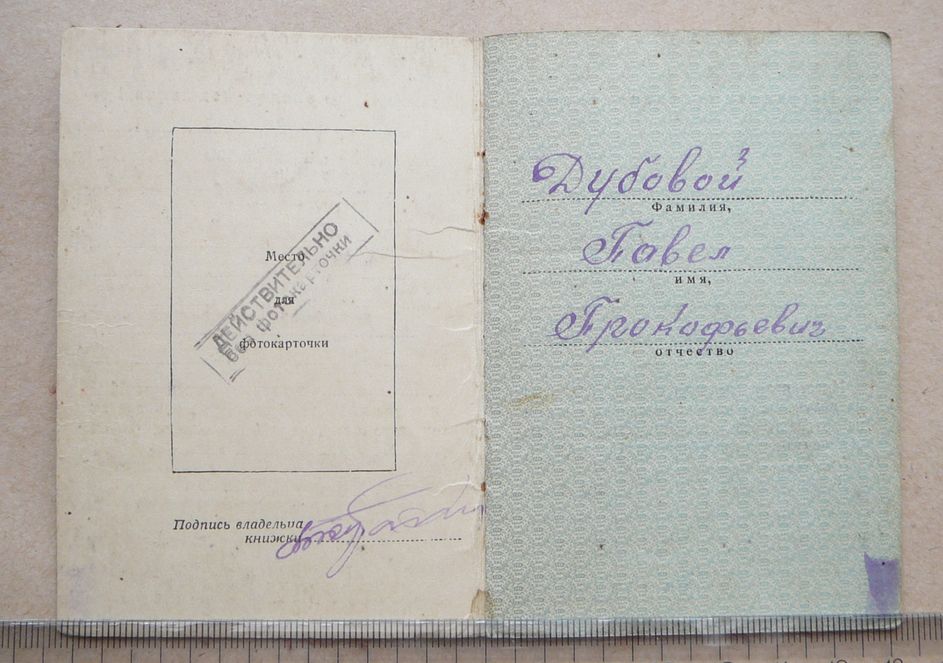 Место
для
фотокарточки
ДЕЙСТВИТЕЛЬНО
без фотокарточки
Подпись владельца
книжки
Дубовой
Фамилия,
Павел
имя,
Прокофьевич
отчество